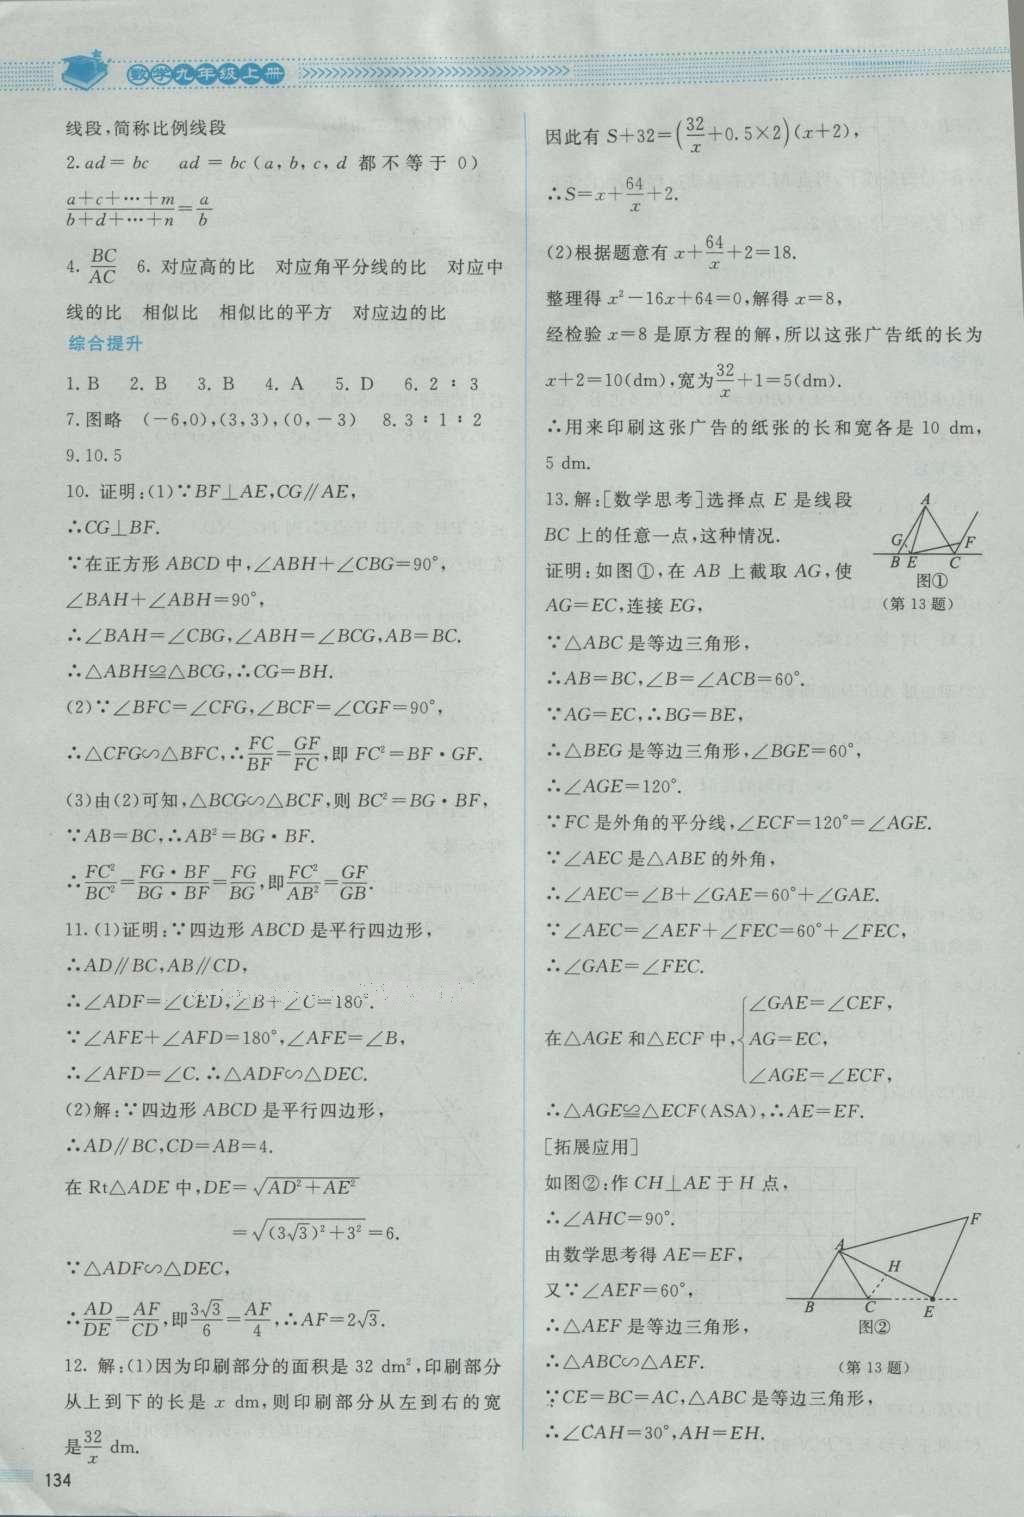 数学九年级上册
线段,简称比例线段
2.ad=bc　ad=bc(a,b,c,d 都不等于 0)
(a+c+⋯+m)/(b+d+⋯+n)=a/b
4. BC/AC　6. 对应高的比　对应角平分线的比　对应中
线的比　相似比　相似比的平方　对应边的比
综合提升
1. B　2. B　3. B　4. A　5. D　6. 2∶3
7. 图略　(−6,0),(3,3),(0,−3)　8. 3∶1∶2
9. 10.5
10. 证明:(1)∵BF⊥AE,CG∥AE,
∴CG⊥BF.
∵在正方形 ABCD 中,∠ABH+∠CBG=90°,
∠BAH+∠ABH=90°,
∴∠BAH=∠CBG,∠ABH=∠BCG,AB=BC.
∴△ABH≌△BCG,∴CG=BH.
(2)∵∠BFC=∠CFG,∠BCF=∠CGF=90°,
∴△CFG∽△BFC,∴FC/BF=GF/FC,即 FC²=BF·GF.
(3)由(2)可知,△BCG∽△BCF,则 BC²=BG·BF,
∵AB=BC,∴AB²=BG·BF.
∴FC²/BC²=(FG·BF)/(BG·BF)=FG/BG,即FC²/AB²=GF/GB.
11. (1)证明:∵四边形 ABCD 是平行四边形,
∴AD∥BC,AB∥CD,
∴∠ADF=∠CED,∠B+∠C=180°.
∵∠AFE+∠AFD=180°,∠AFE=∠B,
∴∠AFD=∠C.∴△ADF∽△DEC.
(2)解:∵四边形 ABCD 是平行四边形,
∴AD∥BC,CD=AB=4.
在 Rt△ADE 中,DE=√(AD²+AE²)
=√((3√3)²+3²)=6.
∵△ADF∽△DEC,
∴AD/DE=AF/CD,即3√3/6=AF/4,∴AF=2√3.
12. 解:(1)因为印刷部分的面积是 32 dm²,印刷部分
从上到下的长是 x dm,则印刷部分从左到右的宽
是32/x dm.
134
因此有 S+32=(32/x+0.5×2)(x+2),
∴S=x+64/x+2.
(2)根据题意有 x+64/x+2=18.
整理得 x²−16x+64=0,解得 x=8,
经检验 x=8 是原方程的解,所以这张广告纸的长为
x+2=10(dm),宽为32/x+1=5(dm).
∴用来印刷这张广告的纸张的长和宽各是 10 dm,
5 dm.
13.解:[数学思考]选择点 E 是线段
BC 上的任意一点,这种情况.
证明:如图①,在 AB 上截取 AG,使
AG=EC,连接 EG,
∵△ABC 是等边三角形,
∴AB=BC,∠B=∠ACB=60°.
∵AG=EC,∴BG=BE,
∴△BEG 是等边三角形,∠BGE=60°,
∴∠AGE=120°.
∵FC 是外角的平分线,∠ECF=120°=∠AGE.
∵∠AEC 是△ABE 的外角,
∴∠AEC=∠B+∠GAE=60°+∠GAE.
∵∠AEC=∠AEF+∠FEC=60°+∠FEC,
∴∠GAE=∠FEC.
在△AGE 和△ECF 中,
∠GAE=∠CEF,
AG=EC,
∠AGE=∠ECF,
∴△AGE≌△ECF(ASA),∴AE=EF.
[拓展应用]
如图②:作 CH⊥AE 于 H 点,
∴∠AHC=90°.
由数学思考得 AE=EF,
又∵∠AEF=60°,
∴△AEF 是等边三角形,
∴△ABC∽△AEF.
∵CE=BC=AC,△ABC 是等边三角形,
∴∠CAH=30°,AH=EH.
A
G
F
B E C
图①
(第 13 题)
F
A
H
B C E
图②
(第 13 题)